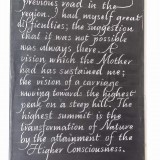 previous road in the
region. I had myself great
difficulties; the suggestion
that it was not possible
was always there. A
vision which the Mother
had has sustained me;
the vision of a carriage
moving towards the highest
peak on a steep hill. The
highest summit is the
transformation of Nature
by the attainment of the
Higher Consciousness.